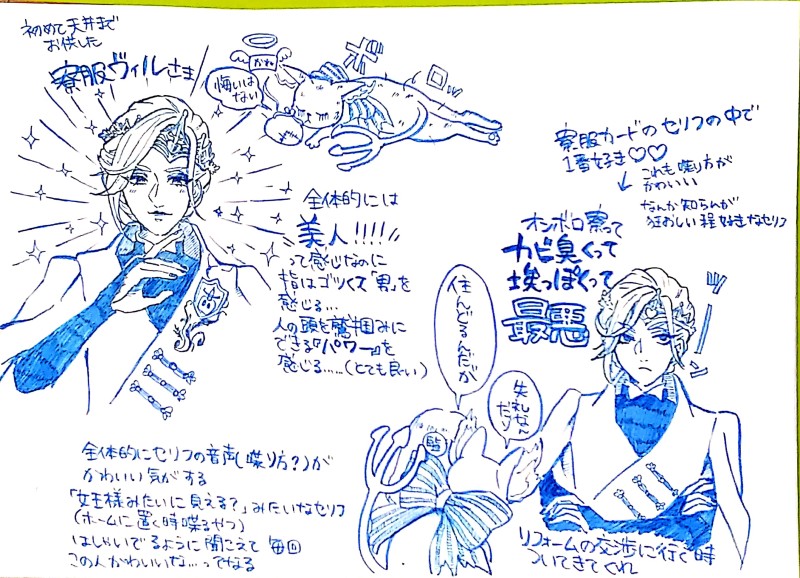 初めて天井まで
お供した
寮服ヴィルさま
かね
悔いは
ない
ボロ…
全体的には
美人!!!!
って感じなのに
指はゴツくて「男」を
感じる…
人の頭を鷲掴みに
できる『パワー』を
感じる……(とても良い)
寮服カードのセリフの中で
1番好き♡♡
これも喋り方が
かわいい
なんか知らんが
狂おしい程好きなセリフ
オンボロ寮って
カビ臭くって
埃っぽくって
最悪
ツーン
住んどるんだが
失礼なん
だゾ
監
全体的にセリフの音声(喋り方?)が
かわいい気がする
「女王様みたいに見える?」みたいなセリフ
(ホームに置く時喋るやつ)
はしゃいでるように聞こえて毎回
この人かわいいな…ってなる
リフォームの交渉に行く時
ついてきてくれ